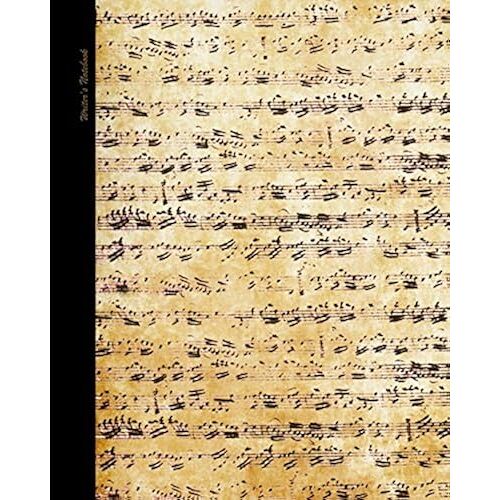 Writer's Notebook